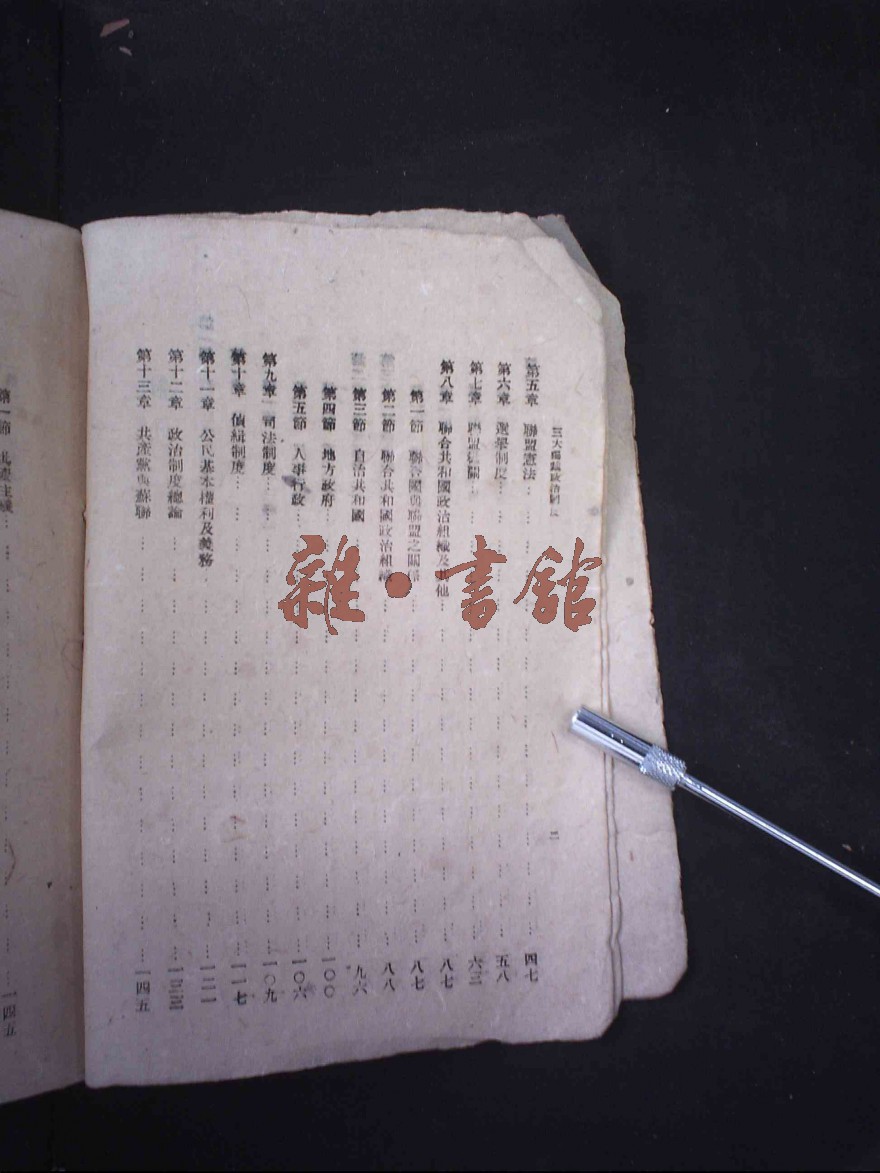 三大聯盟政治制度
二
第五章 聯盟憲法 四七
第六章 選舉制度 五八
第七章 聯盟機關 六三
第八章 聯合共和國政治組織及其他 八七
第一節 聯合國與聯盟之關係 八七
第二節 聯合共和國政治組織 八八
第三節 自治共和國 九六
第四節 地方政府 一〇〇
第五節 人事行政 一〇六
第九章 司法制度 一〇九
第十章 偵緝制度 一一七
第十一章 公民基本權利及義務 一二一
第十二章 政治制度總論 一三三
第十三章 共產黨與蘇聯 一四五
第一節 共產主義 一四五
雜·書館